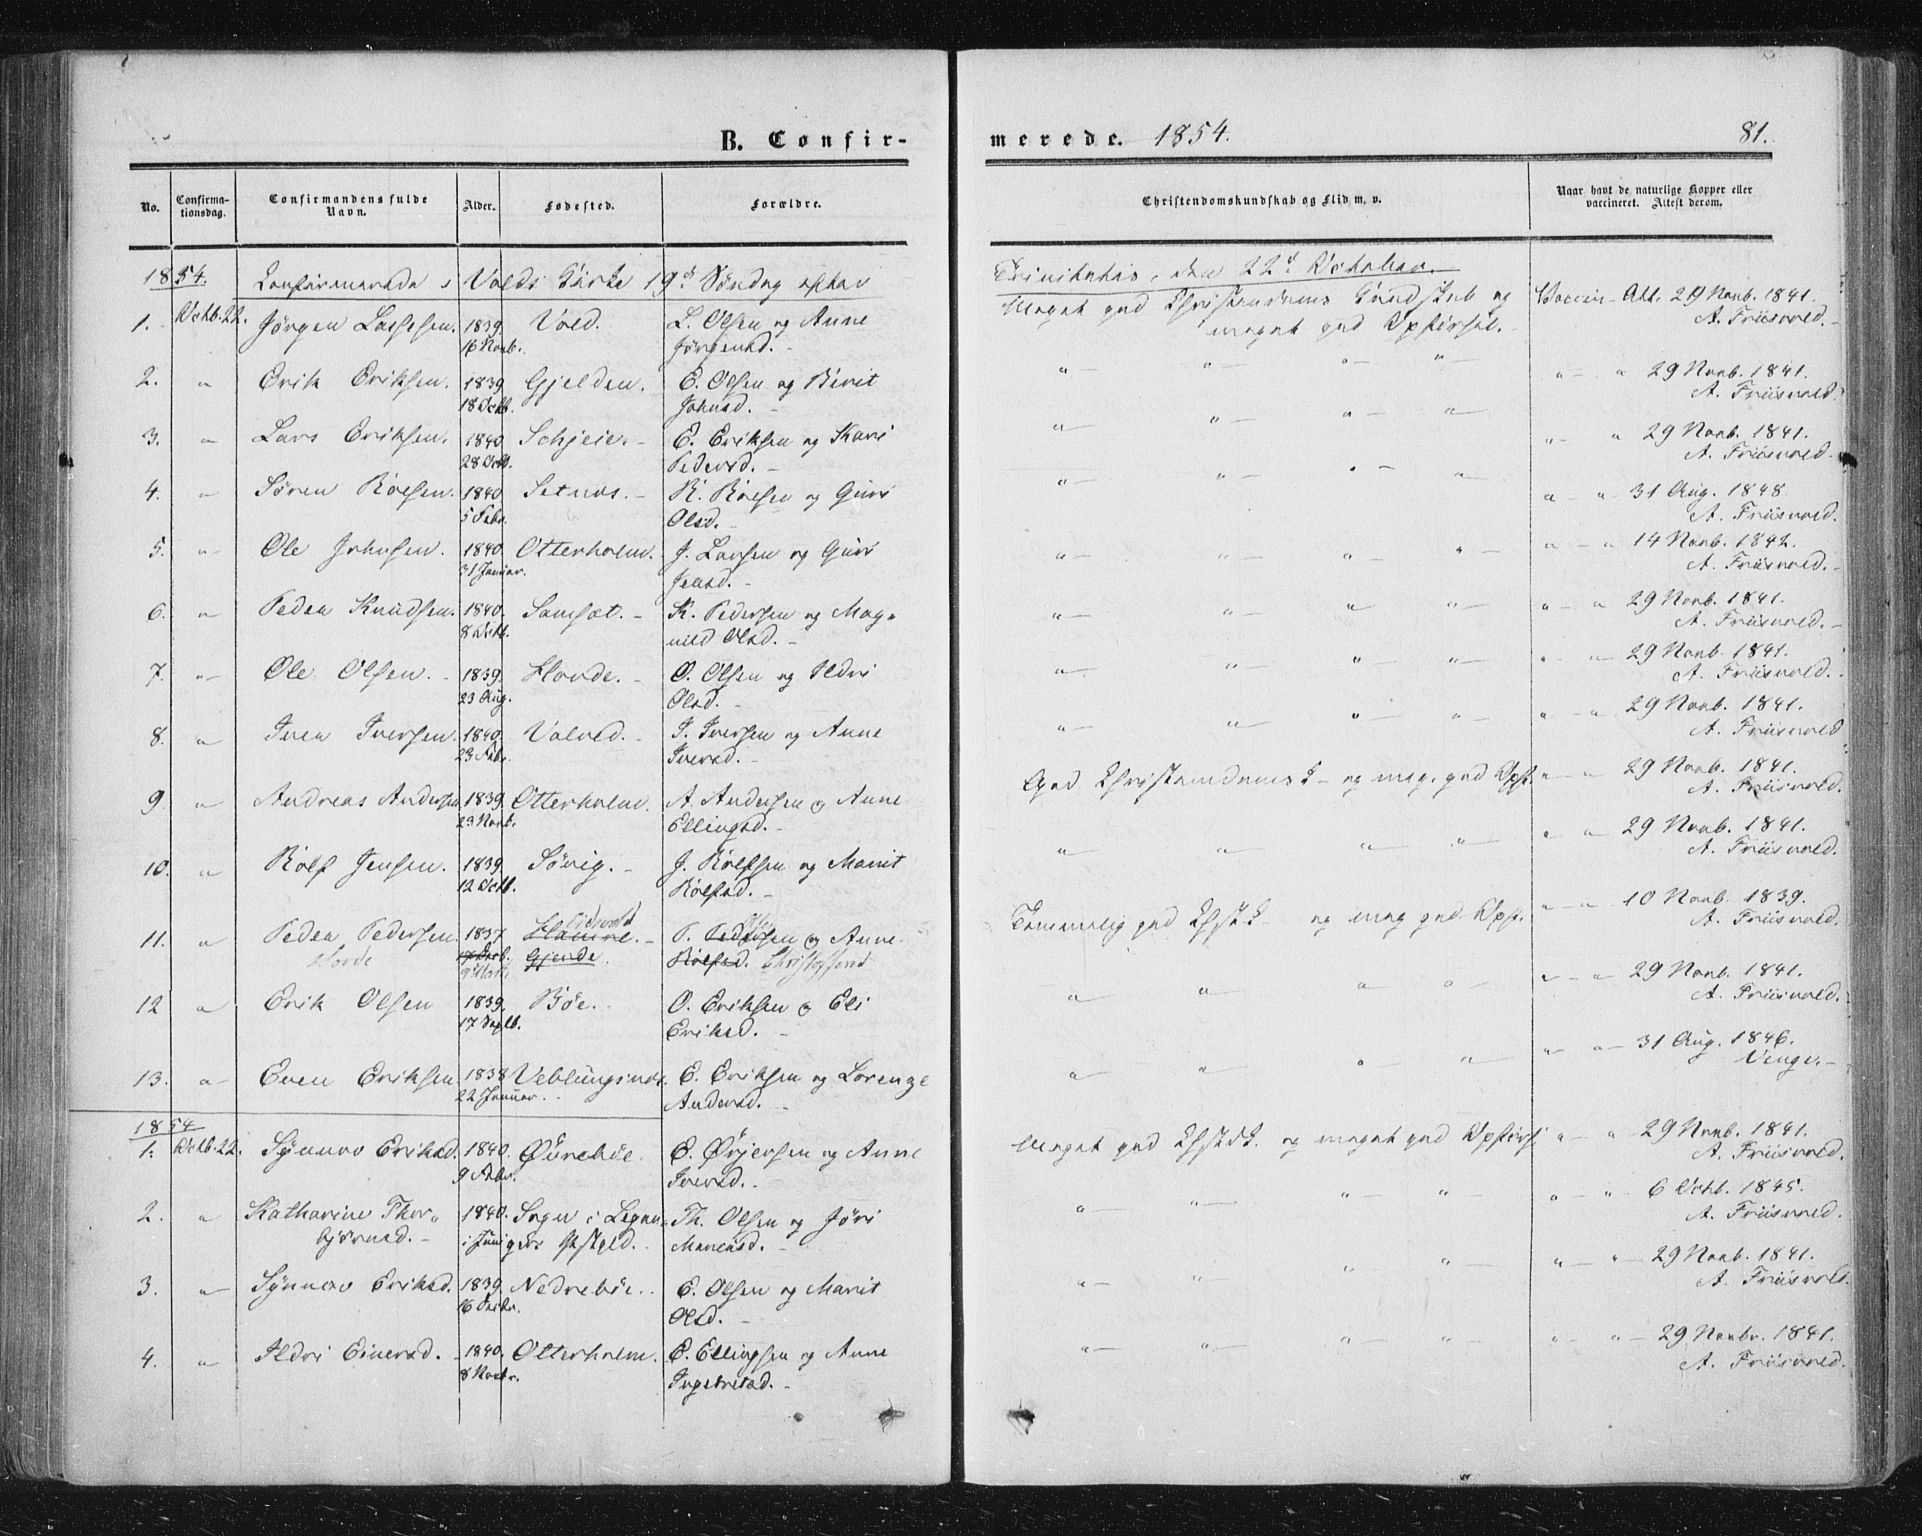 B. Confir-
merede. 1854. 81.
No. Confirma-tionsdag. Confirmandens fulde Navn. Alder. Fødested. Forældre.
Christendomskundskab og Flid m. v. Naar havt de naturlige Kopper eller vaccineret. Attest derom.
1854. Confirmerede i Volds Kirke 19de Søndag efter
Trinitatis, den 22d October.
1. Octb. 22. Jörgen Lassesen. 1839. Vold. L. Olsen og Anne
16 Novb. Jörgensd. -
Meget god Christendoms Kundskab og Vaccin. Att. 29 Novb. 1841.
meget god Opförsel. - A. Friisvold. -
2. " Erik Eriksen. 1839. Gjelden. E. Olsen og Birit
18 Octb. Johnsd. -
" " " " " - " 29 Novb. 1841.
A. Friisvold.
3. " Lars Eriksen. 1840. Schjeie. - E. Eriksen og Kari
28 Octb. Pedersd. -
" " " " " - " 29 Novb. 1841.
A. Friisvold.
4. " Sören Rolfsen. 1840. Setnes. - R. Rolfsen og Guri
5 Febr. Olsd. -
" " " " " - " 31 Aug. 1848.
A. Friisvold.
5. " Ole Johnsen. 1840. Otterholm. J. Larsen og Guri
31 Januar. Jensd. -
" " " " " - " 14 Novb. 1842.
A. Friisvold. -
6. " Peder Knudsen. 1840. Samset. - K. Pedersen og Mag-
8 Octb. nild Olsd. -
" " " " " - " 29 Novb. 1841.
A. Friisvold. -
7. " Ole Olsen. - 1839. Hovde. - O. Olsen og Ildri
23 Aug. Olsd. -
" " " " " - " 29 Novb. 1841.
A. Friisvold.
8. " Iver Iversen. 1840. Volvld. - I. Iversen og Anne
23 Febr. Iversd. -
" " " " " - " 29 Novb. 1841.
A. Friisvold
9. " Andreas Andersen. 1839. Otterholm. A. Andersen og Anne
23 Novb. Ellingsd. -
God Christendoms K - og meg. god Opf. " - " 29 Novb. 1841.
A. Friisvold.
10. " Rolf Jensen. 1839. Sövig. - J. Rolfsen og Marit
12 Octb. Rolfsd. -
" " " " " - " 29 Novb. 1841.
A. Friisvold.
11. " Peder Pedersen. 1837 P. Pedersen og Anne
Hovde Gjerde. Rolfsd. Christoffersd
Temmelig god Chst. K - og meg god Opf. " - " 10 Novb. 1839.
A. Friisvold.
12 " Erik Olsen 1839. Böe. - O. Eriksen og Eli
17 Septb. Eriksd. -
" " " " " - " 29 Novb. 1841.
A. Friisvold.
13. " Even Eriksen. 1838 Veblungsnes. E. Eriksen og Lorenze
22 Januar. - Andersd. -
" " " " " - " 31 Aug. 1846.
Venge. -
1854
1. Octb. 22. Synnov Eriksd. 1840. Ööreböe. E. Örjersen og Anne
9 Febr. Iversd. -
Meget god Chstd K. og meget god Opförsl " - " 29 Novb. 1841.
A. Friisvold.
2. " Katharine Thor- 1840. Sogn i Th. Olsen og Jöri
björnsd. - i Juni Pstgld. Monsensd. -
" " " " " - " 6 Octb. 1845.
A. Friisvold.
3. " Synnov Eriksd. 1839. Nedreböe. - E. Olsen og Marit
Olsd. -
" " " " " - " 29 Novb. 1841.
A. Friisvold.
4. " Ildri Einersd. 1840. Otterholm. E. Ellingsen og Anne
8 Novbr. Ingebretsd. -
" " " " " - " 29 Novbr. 1841.
A. Friisvold.